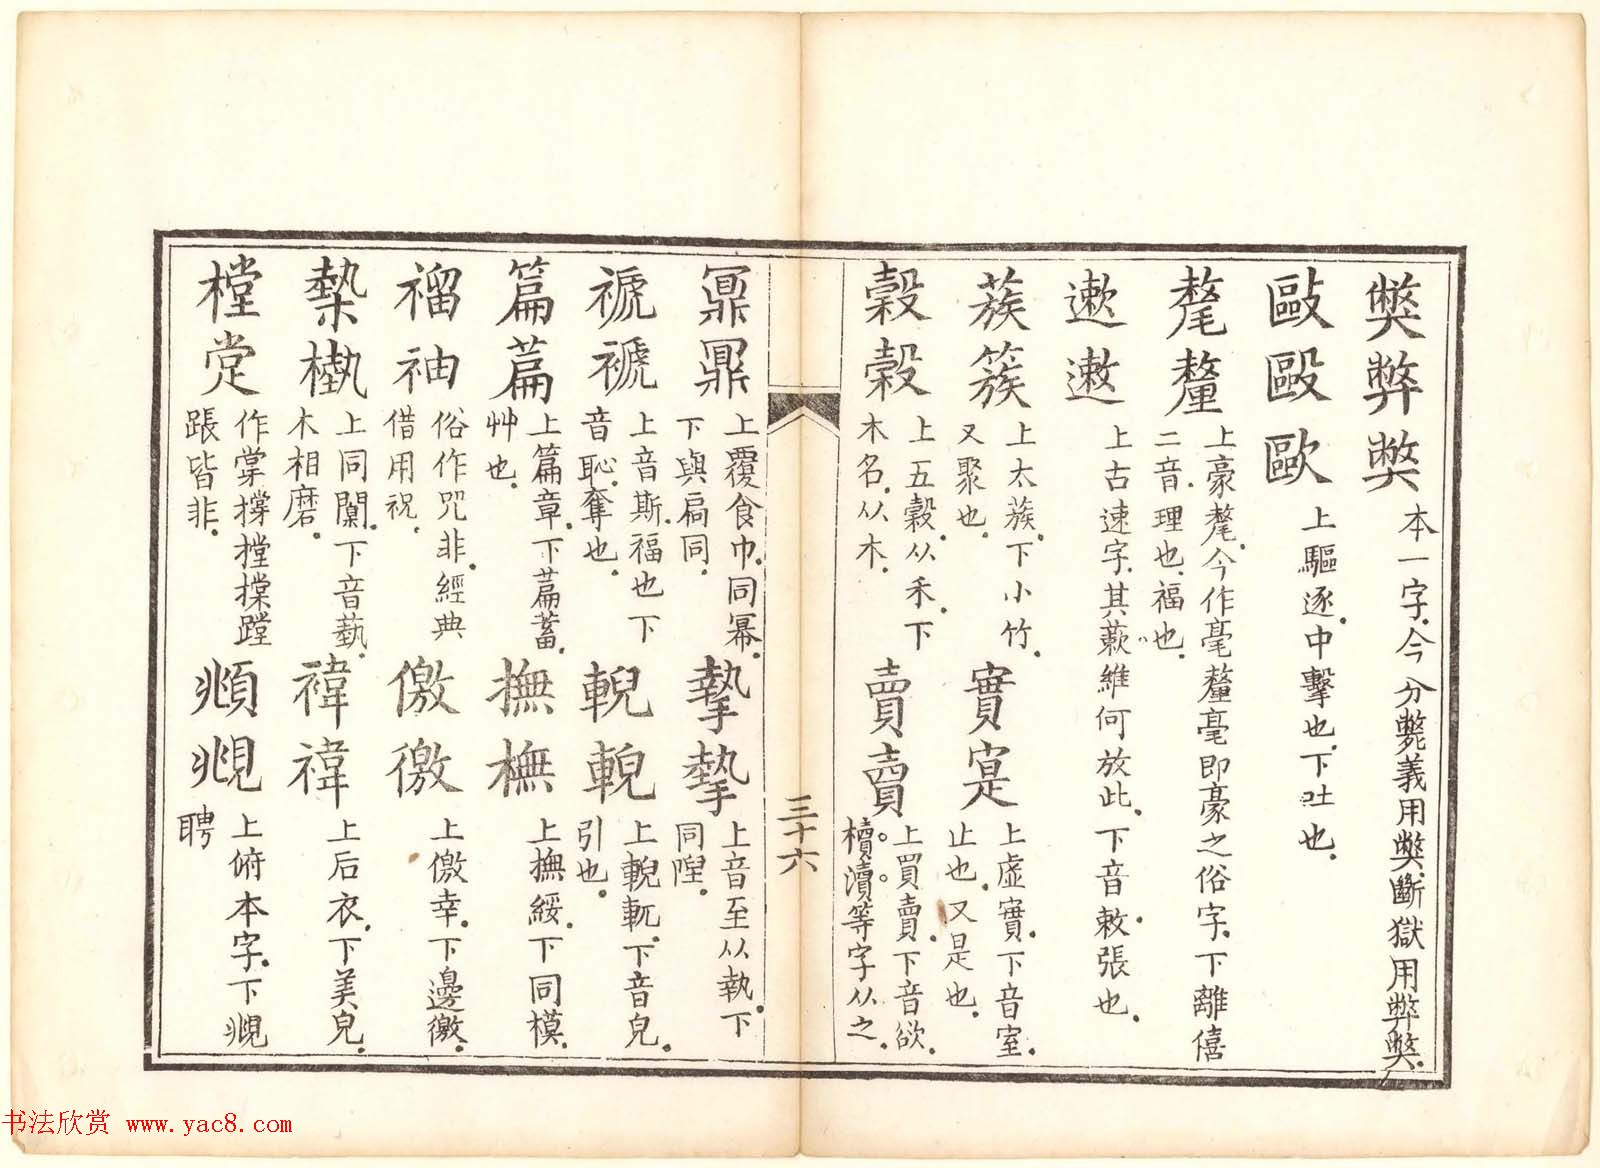 獘弊弊 本一字.今分斃義用獘.斷獄用弊獘.
敺毆歐 上驅逐.中擊也.下吐也.
氂釐 上豪氂.今作毫釐毫即豪之俗字.下離僖
二音.理也.福也.
遬遫 上古速字.其蔌維何放此.下音敕張也.
蔟簇 上太蔟.下小竹.
又聚也.
實寔 上虛實.下音室.
止也.又是也.
穀榖 上五穀.从禾.下
木名.从木.
賣賣 上買賣.下音欲.
櫝瀆等字从之.
三十六
上覆食巾.同冪.
下與扃同.
摯 上音至从執.下
同隉.
褫 上音斯.福也下
音恥.奪也.
輗 上輗軏.下音皃.
引也.
篇萹 上篇章.下萹蓄.
艸也.
撫橅 上撫綏.下同模.
褶袖 俗作咒非.經典
借用祝.
儌徼 上儌幸.下邊徼.
槷 上同闑.下音藝.
木相磨.
褘禕 上后衣.下美皃.
樘定 作掌撐摚橖蹚
䠆皆非.
頫覜 上俯本字.下覜
聘
书法欣赏 www.yac8.com